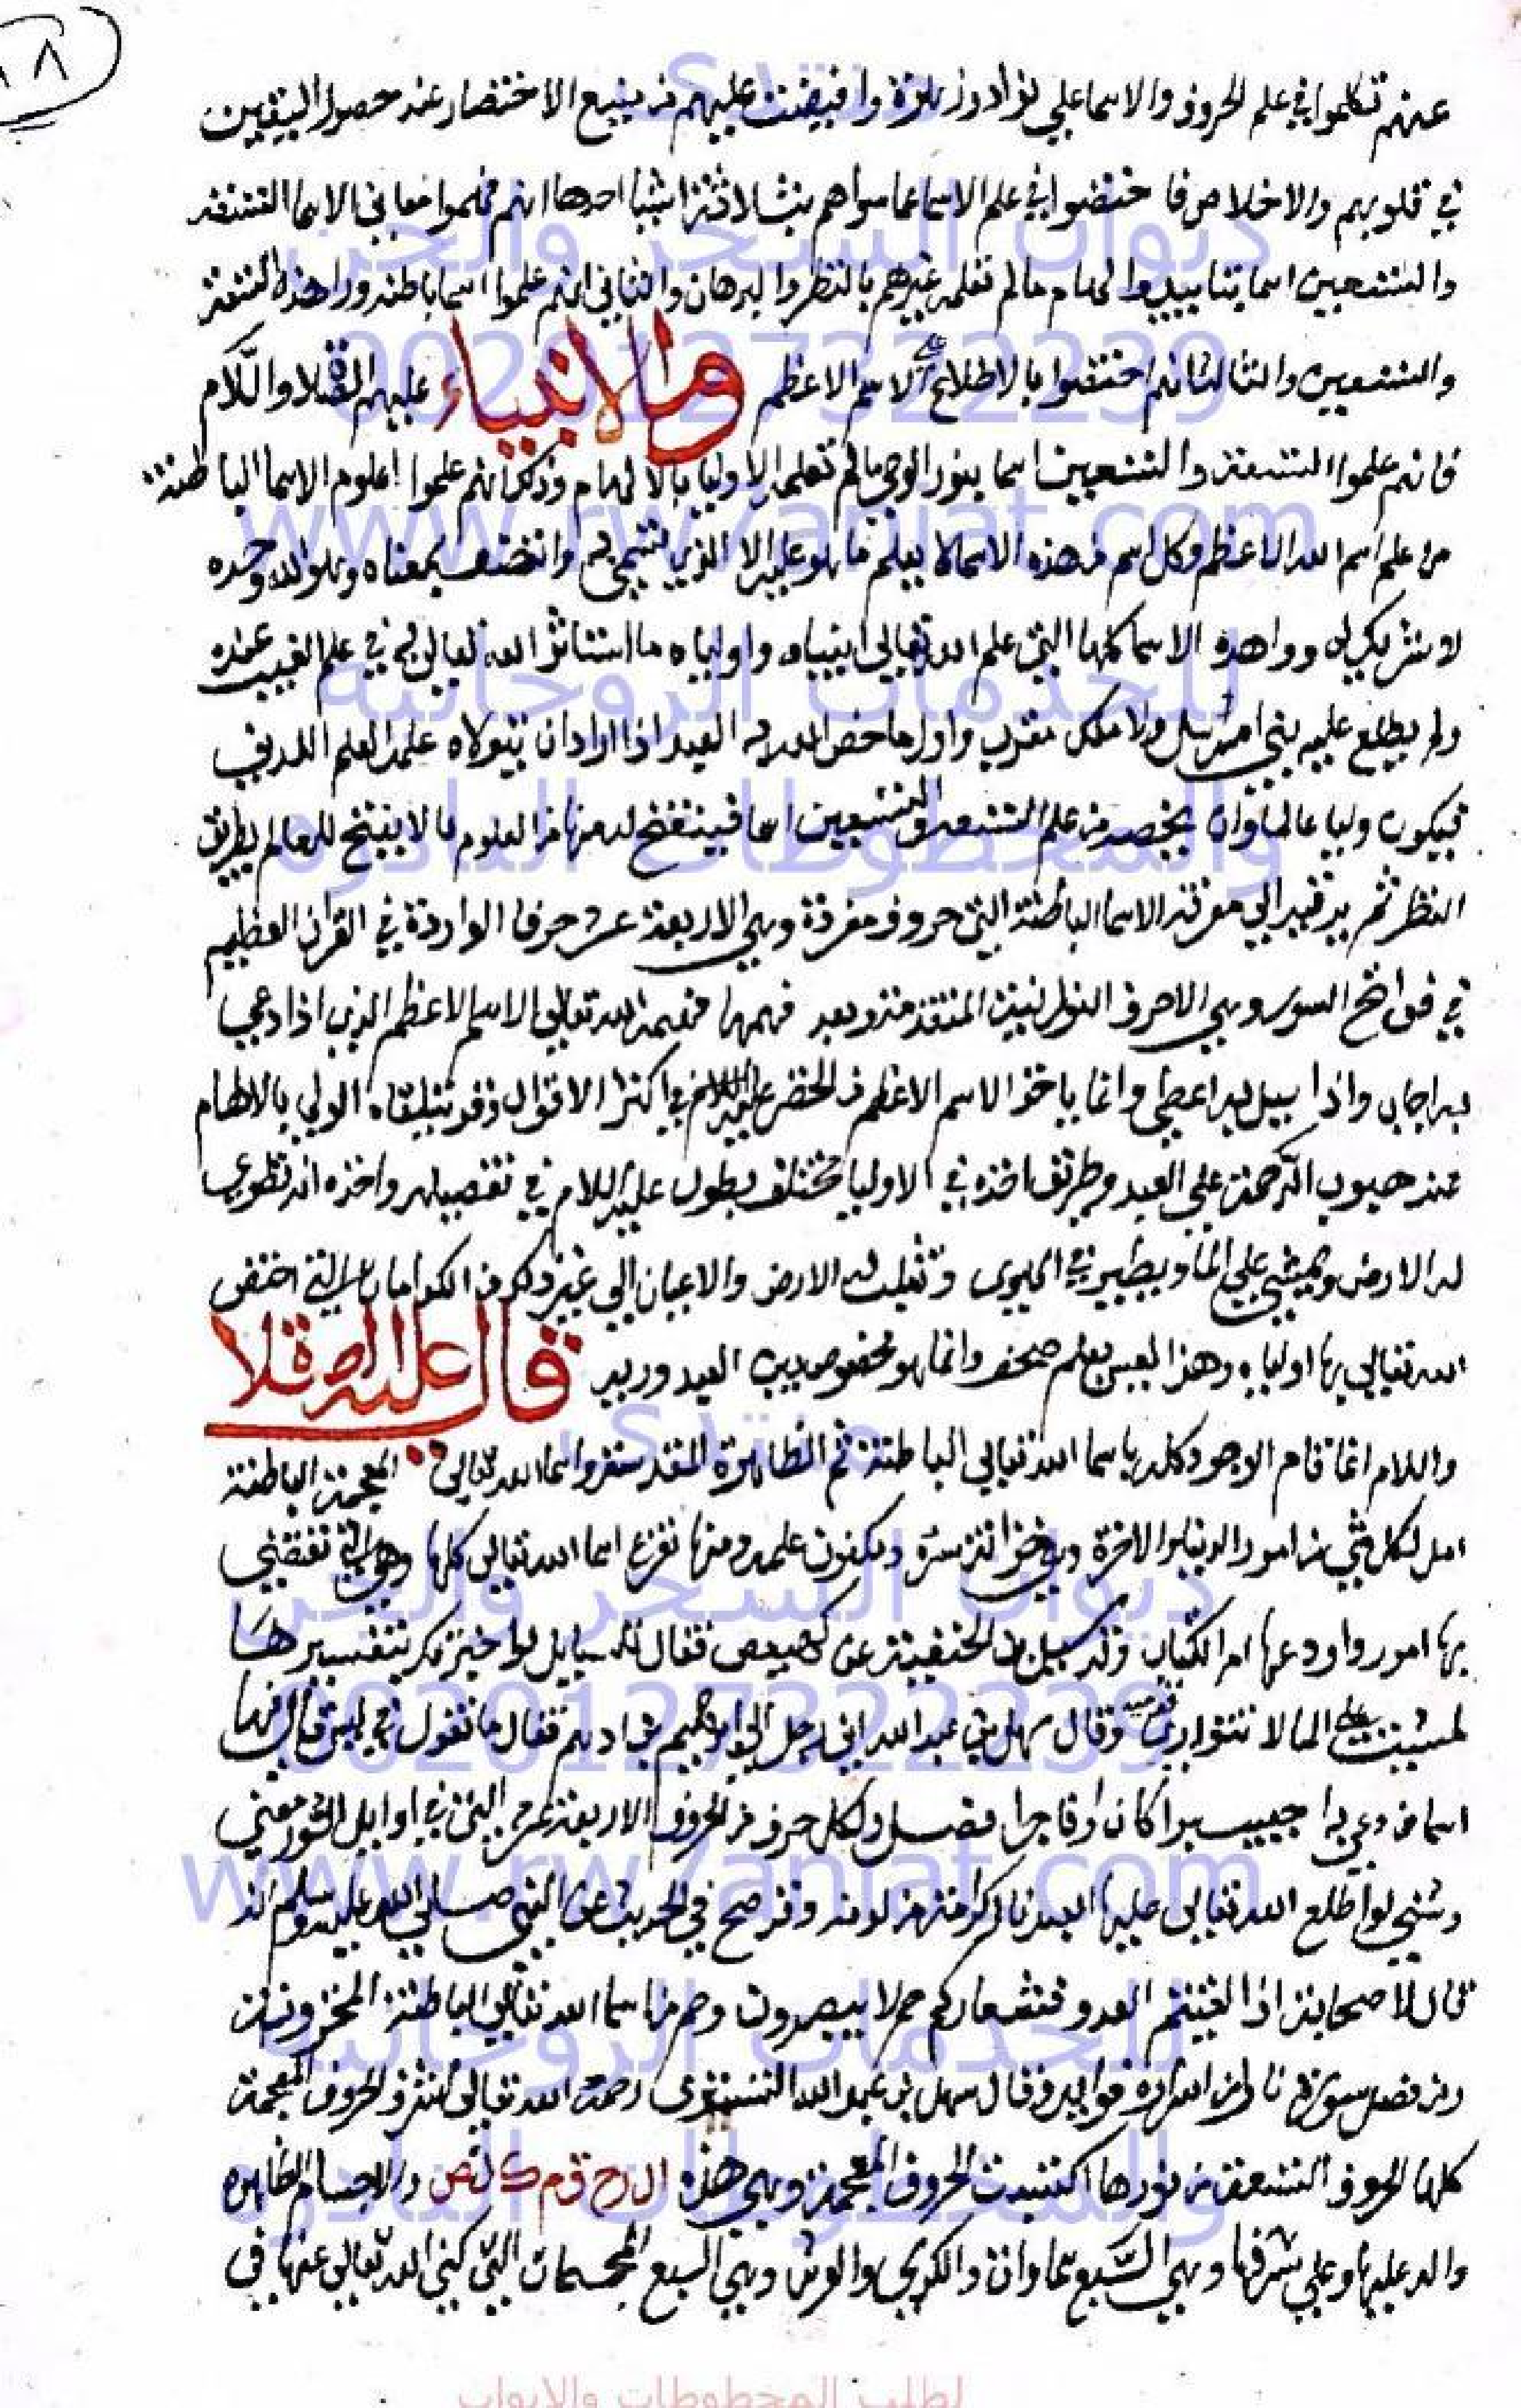 ٨
عنهم تكلموا في علم الحروف والاسما علي وافيضت عليهم من ينبيع الاختصار عند حصول اليقين
في قلوبهم والاخلاص فا ختضوا في علم الاسما عما سواهم بثلاثة اشيا احدها انهم فهموا معاني الاسما التسعة
والتسعين اسما بتاييد والهام مالم تعلمه غيرهم بالنظر والبرهان والثاني انهم علموا اسما باطنه ورا هذه التسعة
والتسعين والثالث انهم اختصوا بالاطلاع علي الاسم الاعظم والانبياء عليهم الصلا والسلام
فانهم علموا التسعة والتسعين اسما بنور الوحي مالم تعلمه الاوليا بالالهام وذلك انهم علموا اعلوم الاسما الباطنة
من علم اسم الله الاعظم وكل اسم من هذه الاسما لا يعلم ما هو عليه الا الذي تسمي به واتصف بمعناه وهو الله وحده
لا شريك له وورا هذه الاسما كلها التي علم الله تعالي انبياه واولياه ما استاثر الله تعالي به في علم الغيب عنده
ولم يطلع عليه نبي مرسل ولا ملك مقرب واول ما خص الله به العبد اذا اراد ان يتولاه علمه العلم اللدني
فيكون وليا عالما وان يخصه من علم التسعة والتسعين اسما فينفتح له منها من العلوم ما لا يفتح للعالم بطريق
النظر ثم يرقيه الي معرفة الاسما الباطنة التي حروف مفردة وهي الاربعة عشر حرفا الواردة في القران العظيم
في فواتح السور وهي الاحرف النورانية المتقدمة وبعد فهمها فهمه الله تعالي الاسم الاعظم الذي اذا دعي
به اجاب واذا سيل به اعطي وانما ياخذ الاسم الاعظم من الخضر عليه السلام في اكثر الاقوال وقد يتلقاه الولي بالالهام
عند هبوب الرحمة علي العبد وطريق اخذه في الاوليا مختلف يطول عليه الكلام في تفصيله واخذه انه تطوي
له الارض ويمشي علي الما ويطير في الهوي وتقلب له الارض والاعيان الي غير ذلك من الكرامات التي اختص
الله تعالي بها اولياه وهذا ليس بعلم صحف وانما هو مخصوص بين العبد وربه قال عليه الصلاة
والسلام انما قام الوجود كله باسما الله تعالي الباطنة ثم الظاهرة المقدسة واسما الله تعالي المعجمة الباطنة
اصل لكل شي من امور الدنيا والاخرة وهي خزانة سره ومكنون علمه ومنها تفرع اسما الله تعالي كلها وهي التي تقتضي
بها امور واودعها ام الكتاب وقد سيل بن الحنفية عن كهيعص فقال للسايل لو اخبرتك بتفسيرها
لمشيت علي الما لا تتواري قدميك وقال سهل بن عبد الله اتي رجل الي ابراهيم بن ادهم فقال ما تقول في يس قال فيها
اسما من دعي به اجيب برا كان او فاجرا فصل ولكل حرف من الحروف الاربعة عشر التي في اوايل السور معني
وشي لو اطلع الله تعالي عليها العبد وقد صح في الحديث عن النبي صلي الله عليه وسلم انه
قال لاصحابه اذا لقيتم العدو فشعاركم حم لا يبصرون وحم من اسما الله تعالي الباطنة المخزونة
ومن فضل سورة وقال سهل بن عبد الله التستري رحمه الله تعالي اشرف الحروف المعجمة
كلها الحروف التسعة من نورها اكتسبت الحروف المعجمة وهي هذه ال ر ح ق م ك ن ص والاجسام الظاهره
والد عليها وعلي شرفها وهي السبع سماوات والكرسي والعرش وهي السبع المجسمات التي كني الله تعالي عنها في
منتدى
ديوان السحر والجن
00201227322239
www.rw7aniat.com
للخدمات الروحانية
والمخطوطات النادره
منتدى
ديوان السحر والجن
00201227322239
www.rw7aniat.com
للخدمات الروحانية
والمخطوطات النادره
لطلب المخطوطات والابواب